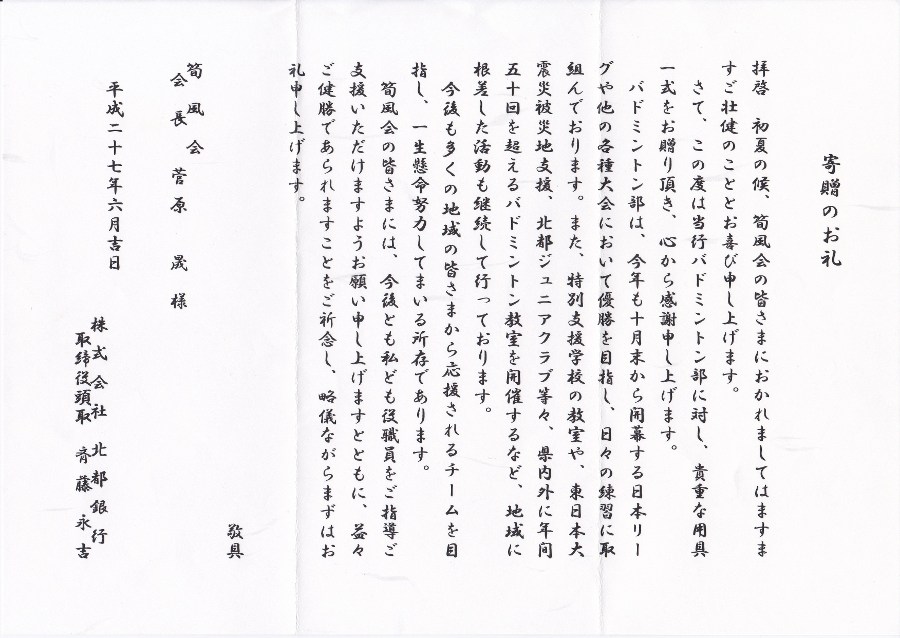 寄贈のお礼
拝啓　初夏の候、筍風会の皆さまにおかれましてはますま
すご壮健のこととお喜び申し上げます。
さて、この度は当行バドミントン部に対し、貴重な用具
一式をお贈り頂き、心から感謝申し上げます。
バドミントン部は、今年も十月末から開幕する日本リー
グや他の各種大会において優勝を目指し、日々の練習に取
組んでおります。また、特別支援学校の教室や、東日本大
震災被災地支援、北都ジュニアクラブ等々、県内外に年間
五十回を超えるバドミントン教室を開催するなど、地域に
根差した活動も継続して行っております。
今後も多くの地域の皆さまから応援されるチームを目
指し、一生懸命努力してまいる所存であります。
筍風会の皆さまには、今後とも私ども役職員をご指導ご
支援いただけますようお願い申し上げますとともに、益々
ご健勝であられますことをご祈念し、略儀ながらまずはお
礼申し上げます。
敬具
筍風会
会長　菅原　晟　様
平成二十七年六月吉日
株式会社　北都銀行
取締役頭取　斉藤永吉